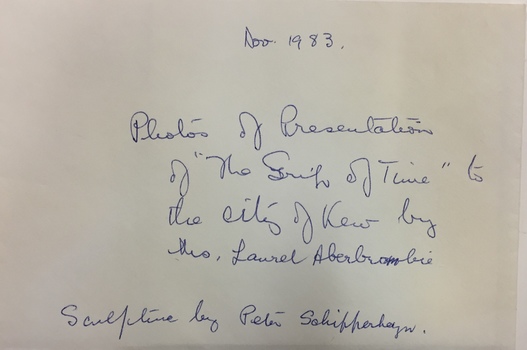 Nov. 1983.
Photos of Presentation
of "The Grip of Time" to
the city of Kew by
Mrs. Laurel Aberbrombie
Sculpture by Peter Schipperheyn.